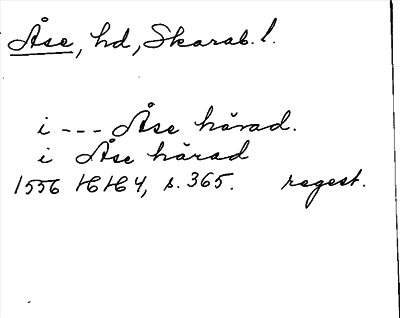 Åse, hd, Skarab. l.
i --- Åse härad.
i Åse härad
1556 HH 4, s. 365. regest.